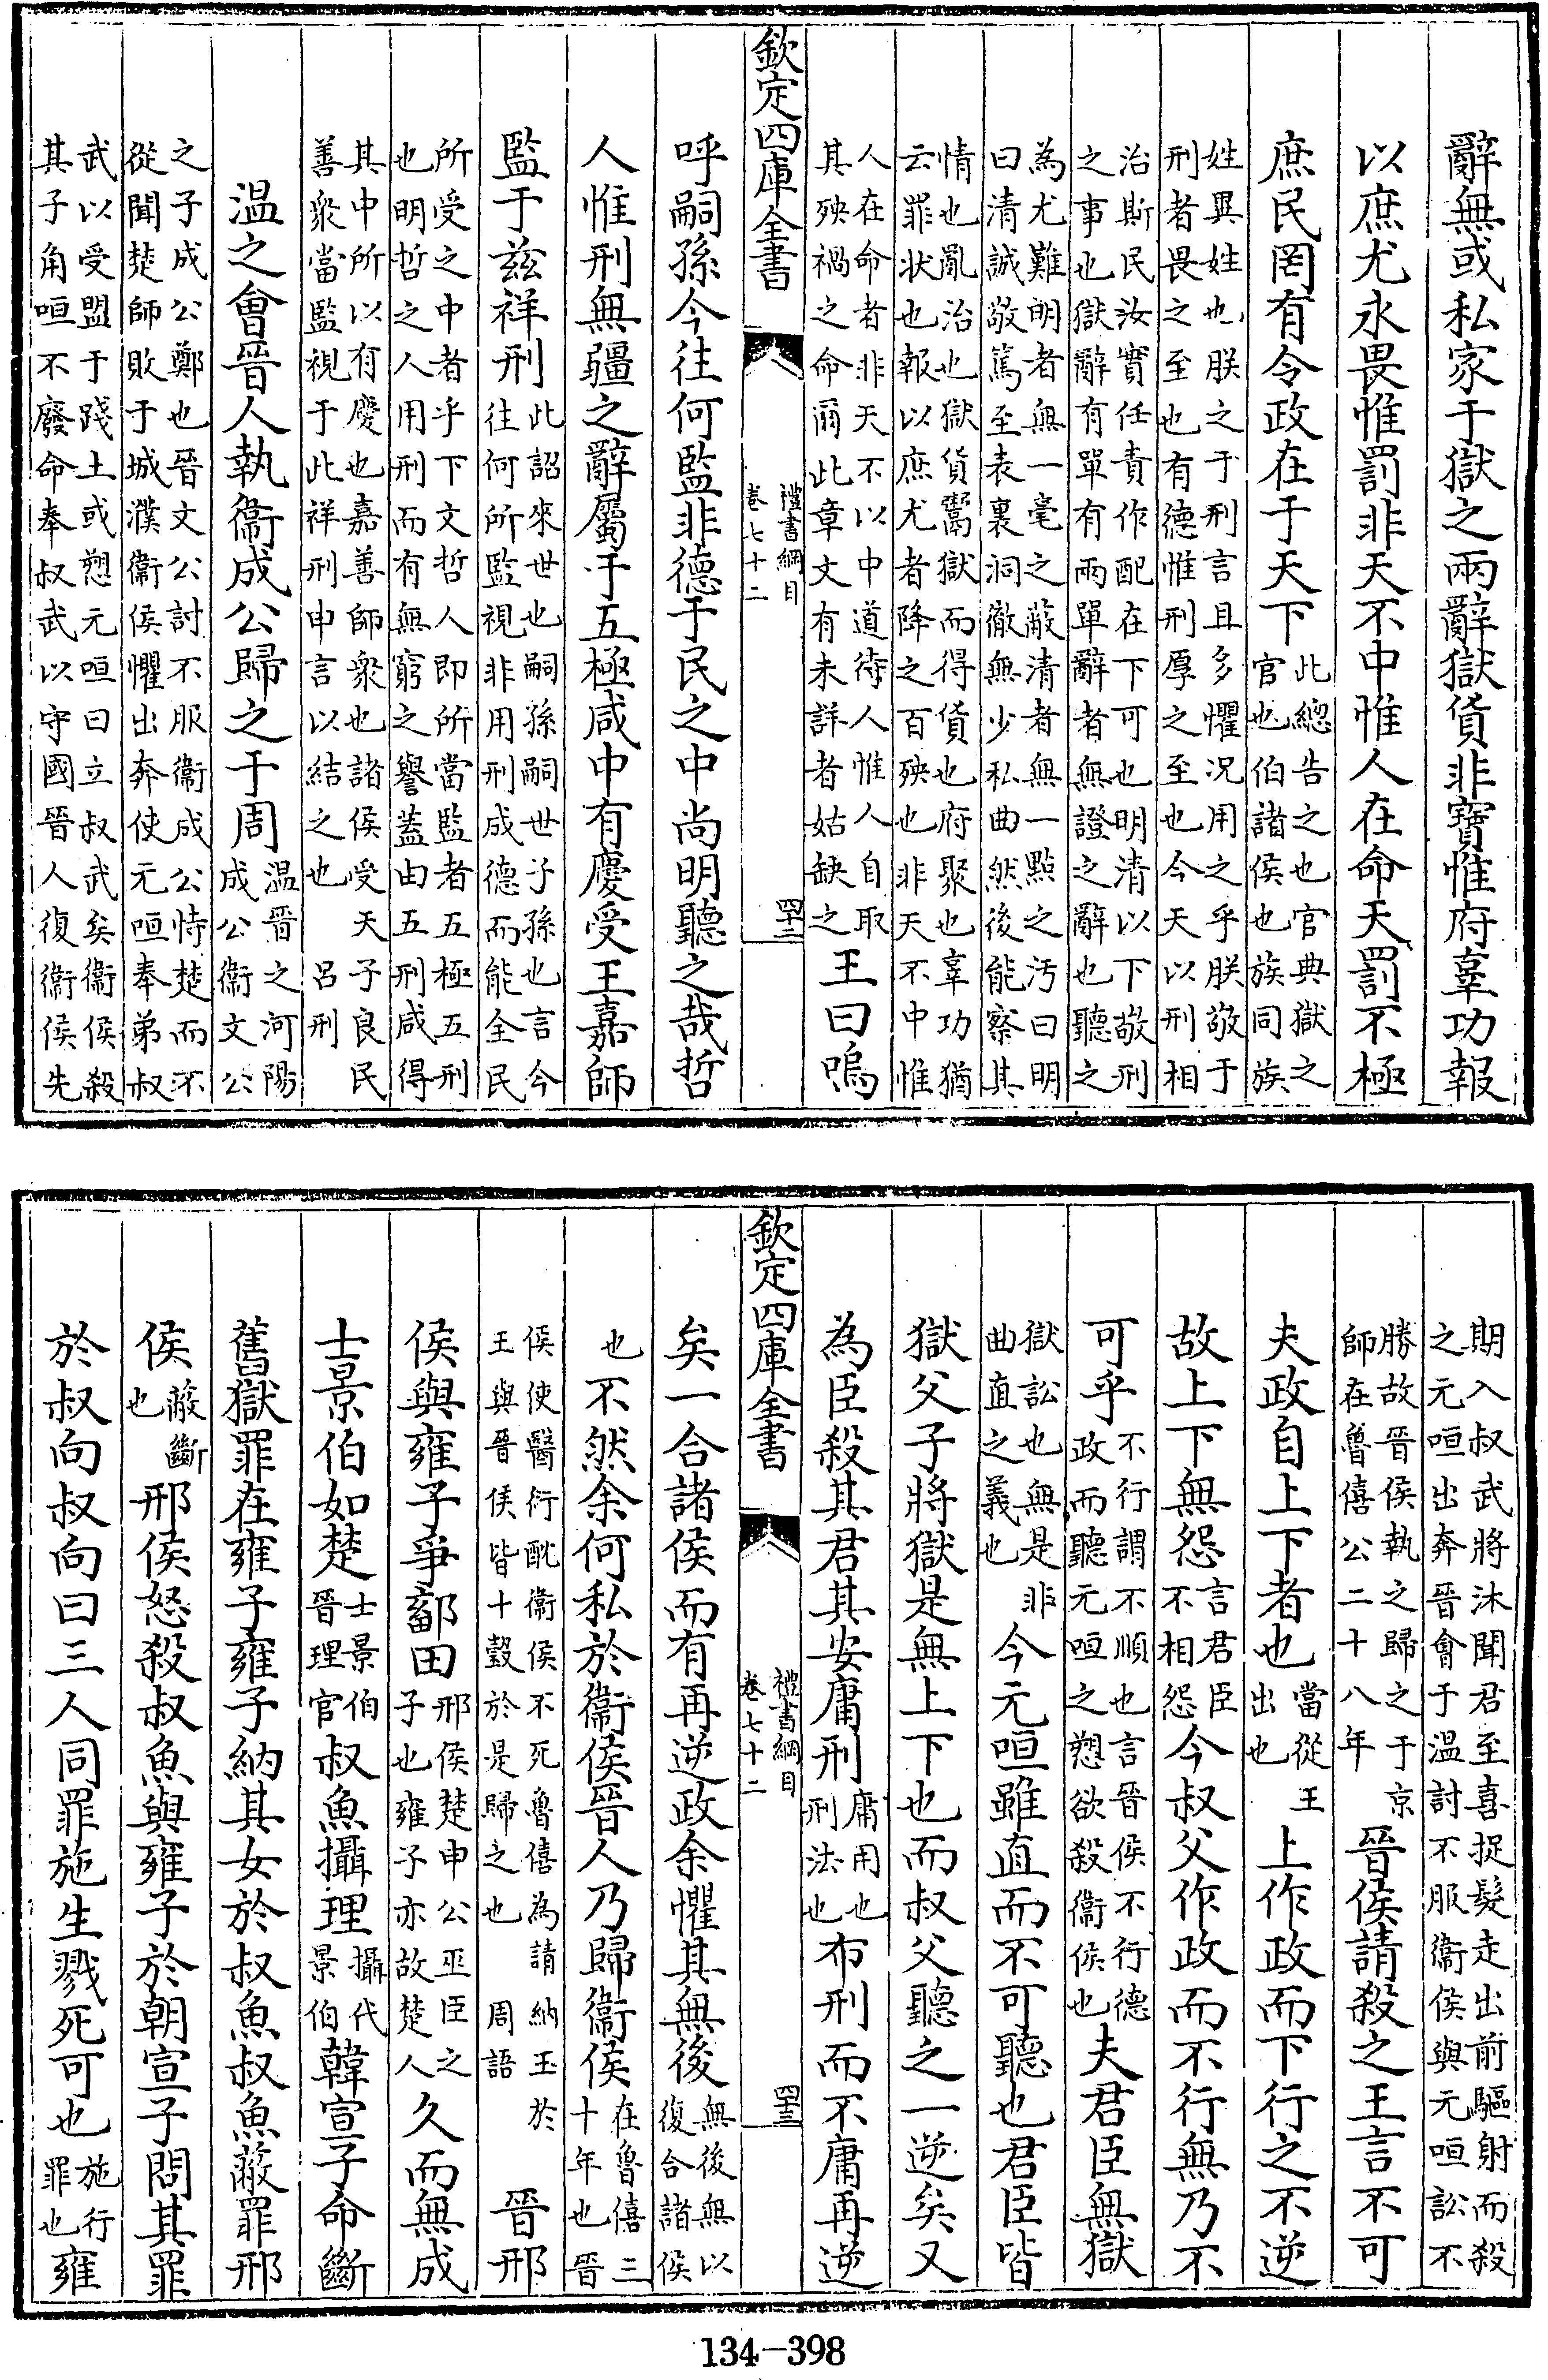 辭無或私家于獄之兩辭獄貨非寶惟府辜功報
以庶尤永畏惟罰非天不中惟人在命天罰不極
庶民罔有令政在于天下此總告之也官典獄之
官也伯諸侯也族同族
姓異姓也朕之于刑言且多懼況用之乎朕敬于
刑者畏之至也有德惟刑厚之至也今天以刑相
治斯民汝實任責作配在下可也明清以下敬刑
之事也獄辭有單有兩單辭者無證之辭也聽之
為尤難明者無一毫之蔽清者無一點之污曰明
曰清誠敬篤至表裏洞徹無少私曲然後能察其
情也亂治也獄貨鬻獄而得貨也府聚也辜功猶
云罪狀也報以庶尤者降之百殃也非天不中惟
人在命者非天不以中道待人惟人自取
其殃禍之命爾此章文有未詳者姑缺之王曰嗚
欽定四庫全書
禮書綱目
卷七十二
四十二
呼嗣孫今往何監非德于民之中尚明聽之哉哲
人惟刑無疆之辭屬于五極咸中有慶受王嘉師
監于兹祥刑此詔來世也嗣孫嗣世子孫也言今
往何所監視非用刑成德而能全民
所受之中者乎下文哲人即所當監者五極五刑
也明哲之人用刑而有無窮之譽蓋由五刑咸得
其中所以有慶也嘉善師衆也諸侯受天子良民
善衆當監視于此祥刑申言以結之也　呂刑
温之會晉人執衞成公歸之于周温晉之河陽
成公衞文公
之子成公鄭也晉文公討不服衞成公恃楚而不
從聞楚師敗于城濮衞侯懼出奔使元咺奉弟叔
武以受盟于踐土或愬元咺曰立叔武矣衞侯殺
其子角咺不廢命奉叔武以守國晉人復衞侯先
期入叔武將沐聞君至喜捉髮走出前驅射而殺
之元咺出奔晉會于温討不服衞侯與元咺訟不
勝故晉侯執之歸之于京
師在魯僖公二十八年晉侯請殺之王言不可
夫政自上下者也當從王
出也上作政而下行之不逆
故上下無怨言君臣
不相怨今叔父作政而不行無乃不
可乎不行謂不順也言晉侯不行德
政而聽元咺之愬欲殺衞侯也夫君臣無獄
獄訟也無是非
曲直之義也今元咺雖直而不可聽也君臣皆
獄父子將獄是無上下也而叔父聽之一逆矣又
為臣殺其君其安庸刑庸用也
刑法也布刑而不庸再逆
欽定四庫全書
禮書綱目
卷七十二
四十三
矣一合諸侯而有再逆政余懼其無後無後無以
復合諸侯
也不然余何私於衞侯晉人乃歸衞侯在魯僖三
十年也晉
侯使醫衍酖衞侯不死魯僖為請納玉於
王與晉侯皆十瑴於是歸之也　周語　晉邢
侯與雍子爭鄐田邢侯楚申公巫臣之
子也雍子亦故楚人久而無成
士景伯如楚士景伯
晉理官叔魚攝理攝代
景伯韓宣子命斷
舊獄罪在雍子雍子納其女於叔魚叔魚蔽罪邢
侯蔽斷
也邢侯怒殺叔魚與雍子於朝宣子問其罪
於叔向叔向曰三人同罪施生戮死可也施行
罪也雍
134-398